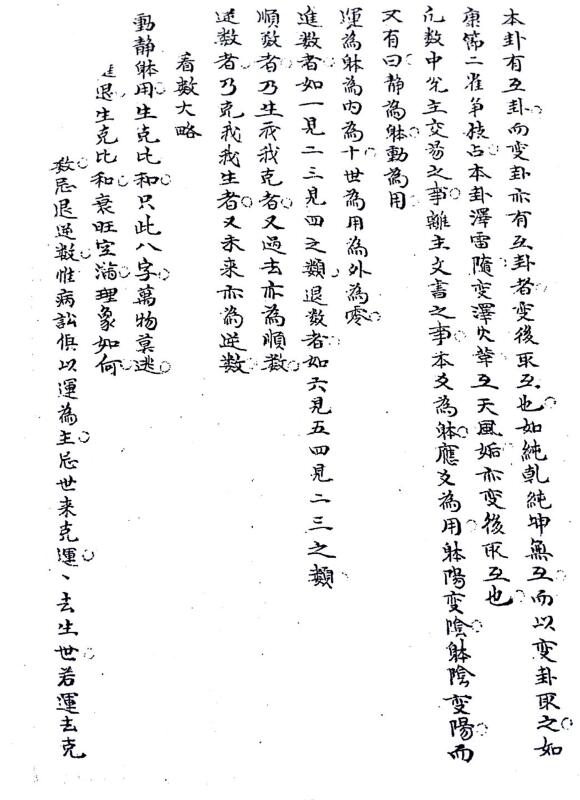 本卦有互卦而变卦亦有互卦者变後取互也如純乹純坤無互而以变卦取之如
康節二雀争枝占本卦澤雷隨变澤火革互天風姤亦变後取互也
凢数中兌主交易之事離主文書之事本爻為躰應爻為用躰陽变陰躰陰变陽而
又有曰静為躰動為用
運為躰為内為十世為用為外為零
進数者如一見二三見四之類退数者如六見五四見二三之類
順数者乃生我我克者又過去亦為順数
逆数者乃克我我生者又未来亦為逆数
看数大略
動静躰用生克比和只此八字萬物莫逃
進退生克比和衰旺空滿理象如何
数忌退逆数惟病訟惧以運為主忌世来克運、去生世若運去克